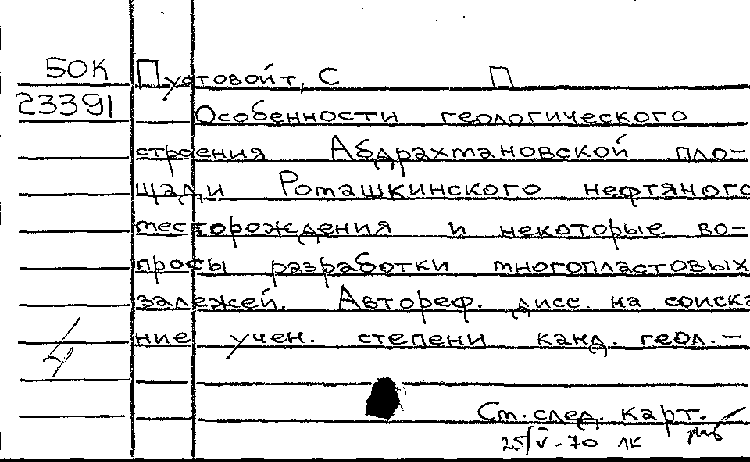 50К Пустовойт, С П
23391 Особенности геологического
строения Абдрахмановской пло-
щади Роташкинского нефтяного
месторождения и некоторые во-
просы разработки многопластовых
залежей. Автореф. дисс. на соиска
ние учен. степени канд. геол.-
См. след. карт.
25/V-70 ЛК